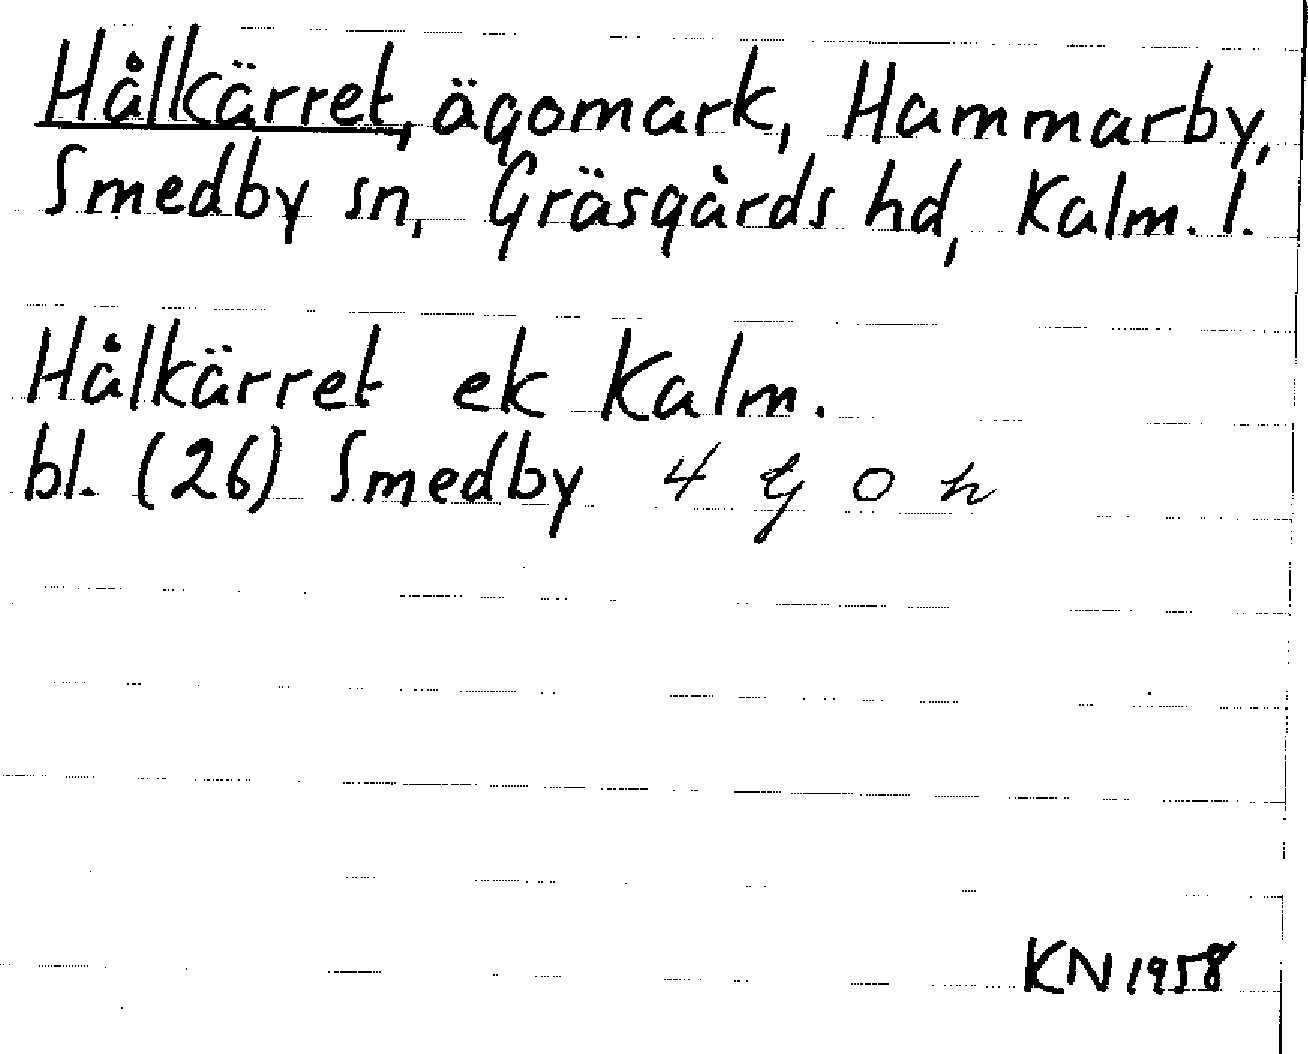 Hålkärret, ägomark, Hammarby,
Smedby sn, Gräsgårds hd, Kalm. l.
Hålkärret ek Kalm.
bl. (26) Smedby 4 g o n
KN 1958